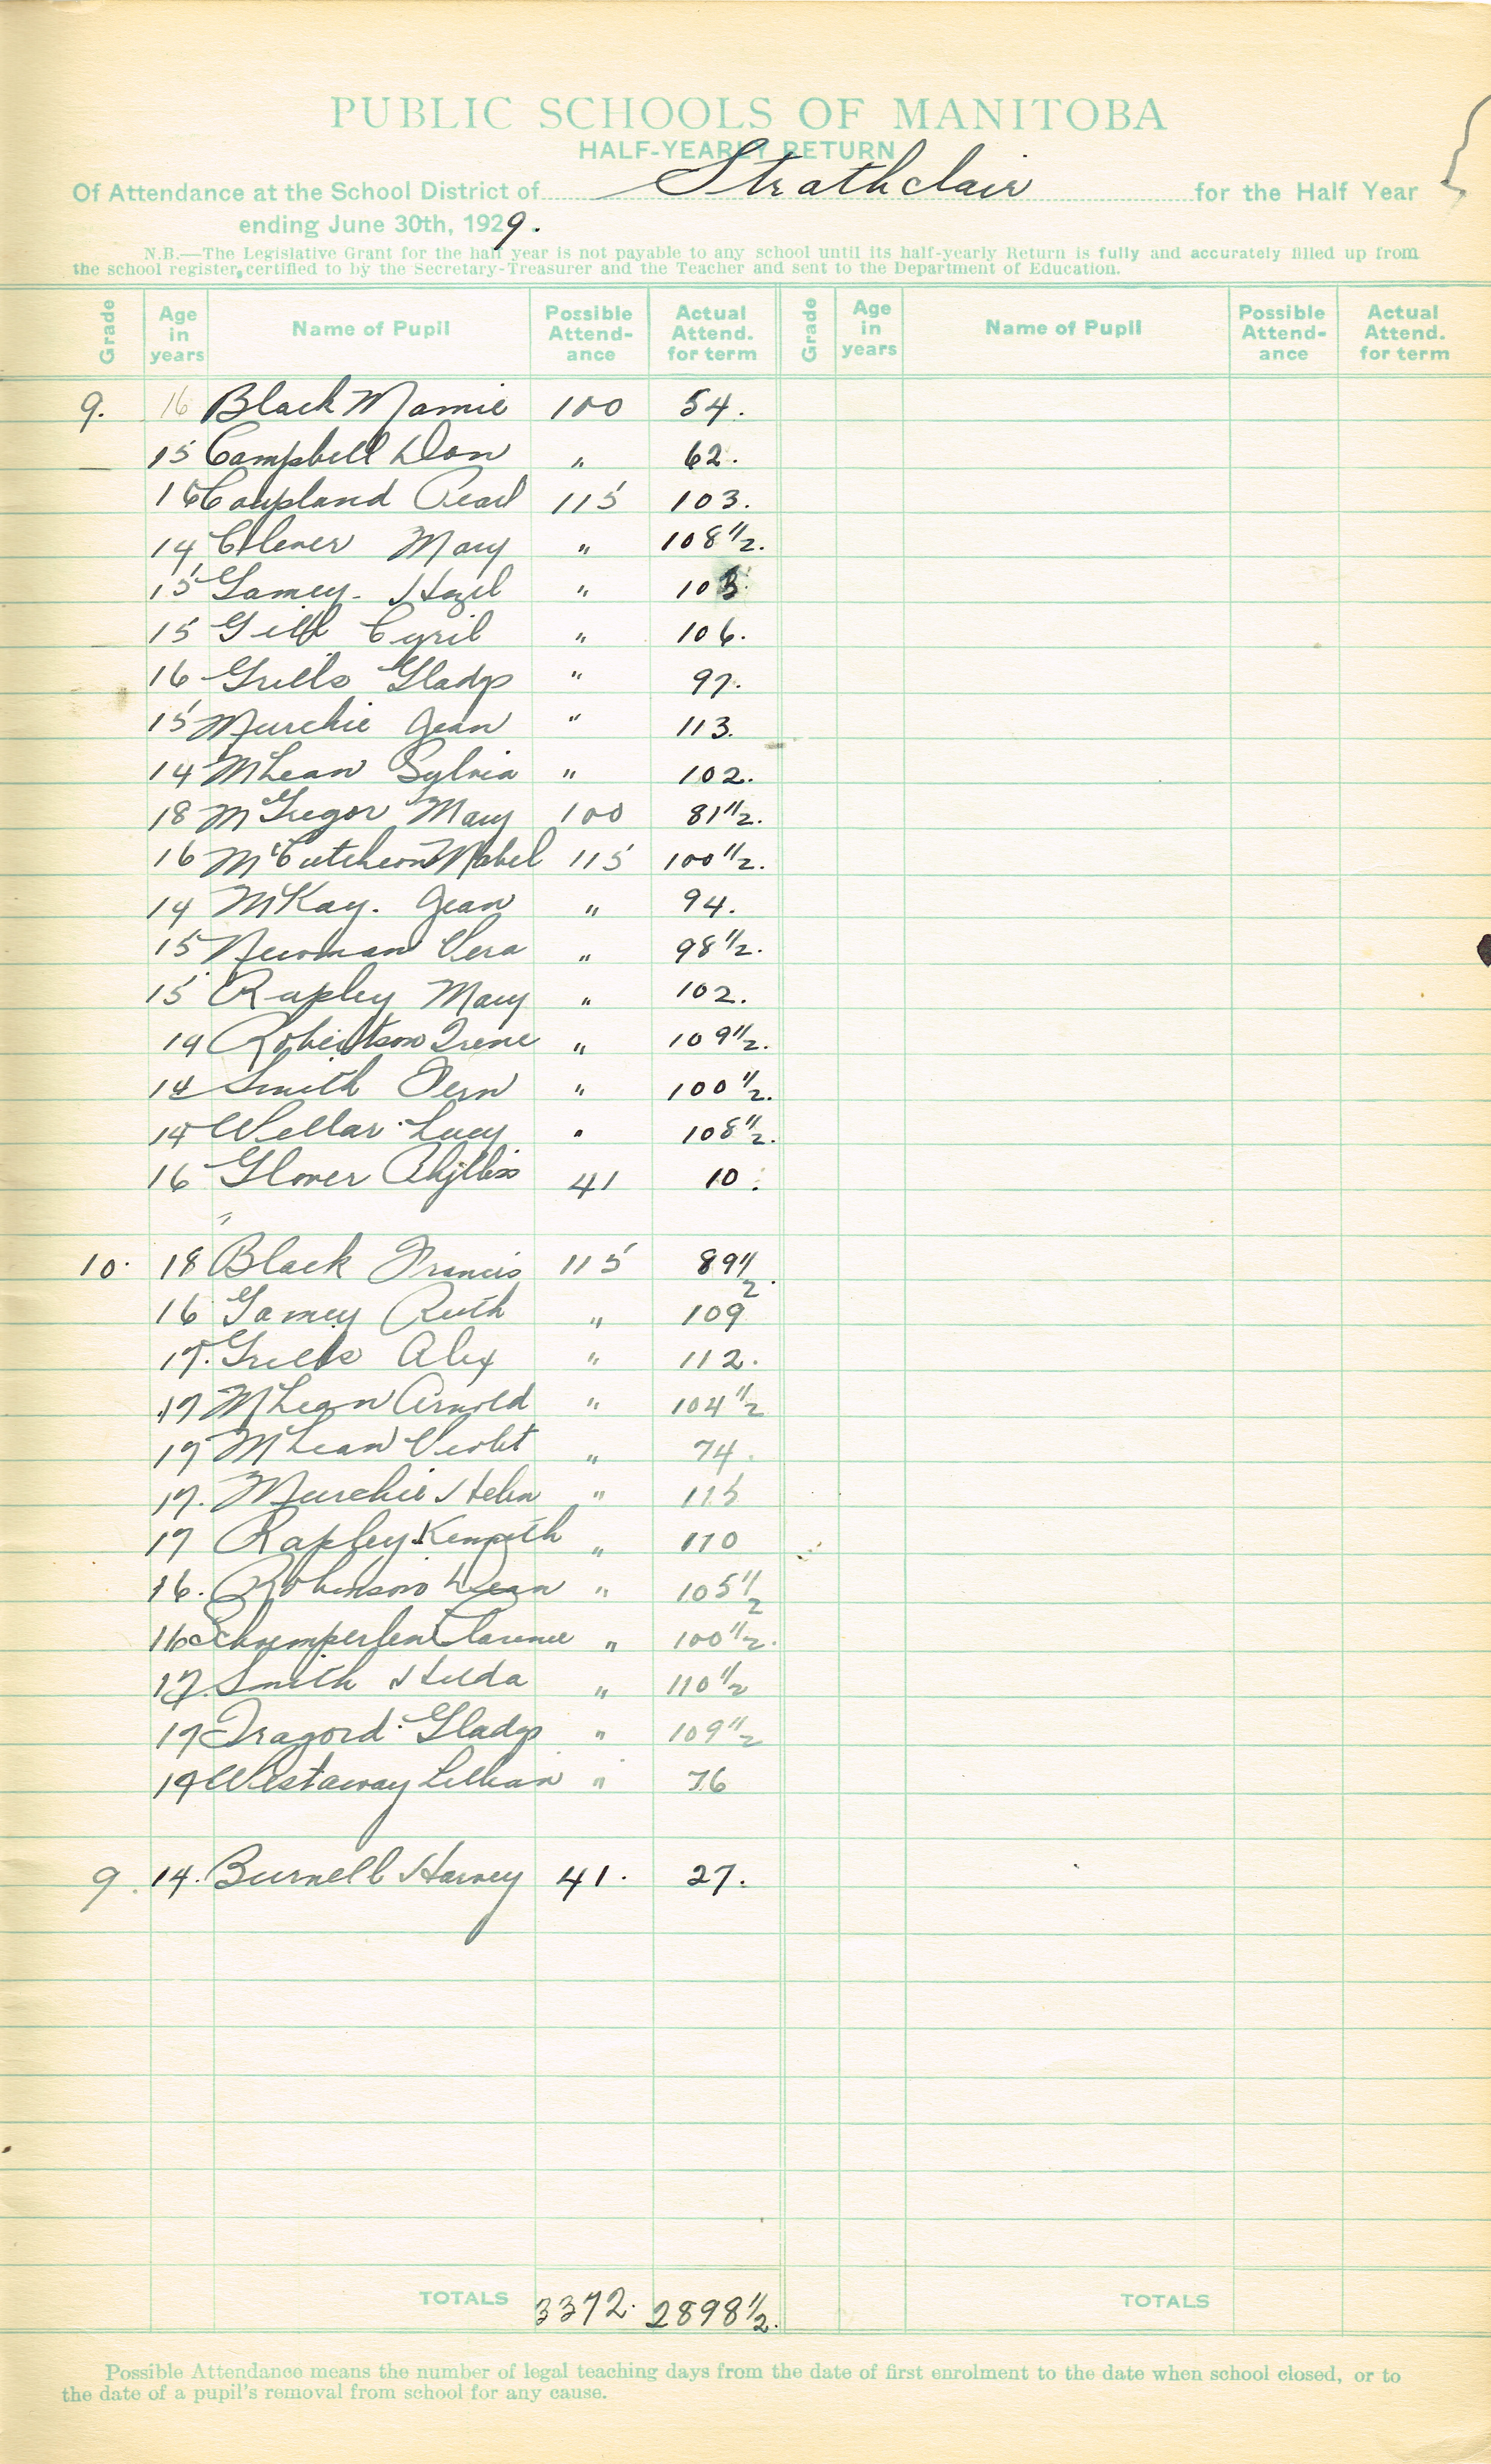 PUBLIC SCHOOLS OF MANITOBA
HALF-YEARLY RETURN
Of Attendance at the School District of Strathclair for the Half Year
ending June 30th, 1929.
N.B.—The Legislative Grant for the half year is not payable to any school until its half-yearly Return is fully and accurately filled up from
the school register, certified to by the Secretary-Treasurer and the Teacher and sent to the Department of Education.
Grade Age in years Name of Pupil Possible Attend-ance Actual Attend. for term Grade Age in years Name of Pupil Possible Attend-ance Actual Attend. for term
9. 16 Black Mamie 100 54.
15 Campbell Don " 62.
16 Coupland Pearl 115 103.
14 Clever Mary " 108 1/2.
15 Gamey. Hazel " 103
15 Gill Cyril " 106.
16 Grills Gladys " 97.
15 Murchie Jean " 113.
14 McLean Sylvia " 102.
18 McGregor Mary 100 81 1/2.
16 McCutcheon Mabel 115 100 1/2.
14 McKay. Jean " 94.
15 Newman Vera " 98 1/2.
15 Rapley Mary " 102.
14 Robertson Irene " 109 1/2.
14 Smith Fern " 100 1/2.
14 Wellar Lucy " 108 1/2.
16 Glover Phyllis 41 10.
10. 18 Black Francis 115 89 1/2.
16 Gamey Ruth " 109
17. Grills Alex " 112.
17 McLean Arnold " 104 1/2
17 McLean Violet " 74.
17. Murchie Helen " 115
17 Rapley Kenneth " 110
16. Robinson Dean " 105 1/2
16 Schwemperlen Clarence " 100 1/2.
17. Smith Hilda " 110 1/2
17 Gladys " 109 1/2
19 Westaway Lillian " 76
9. 14. Burnell Harvey 41. 27.
TOTALS 3372. 2898 1/2. TOTALS
Possible Attendance means the number of legal teaching days from the date of first enrolment to the date when school closed, or to
the date of a pupil's removal from school for any cause.